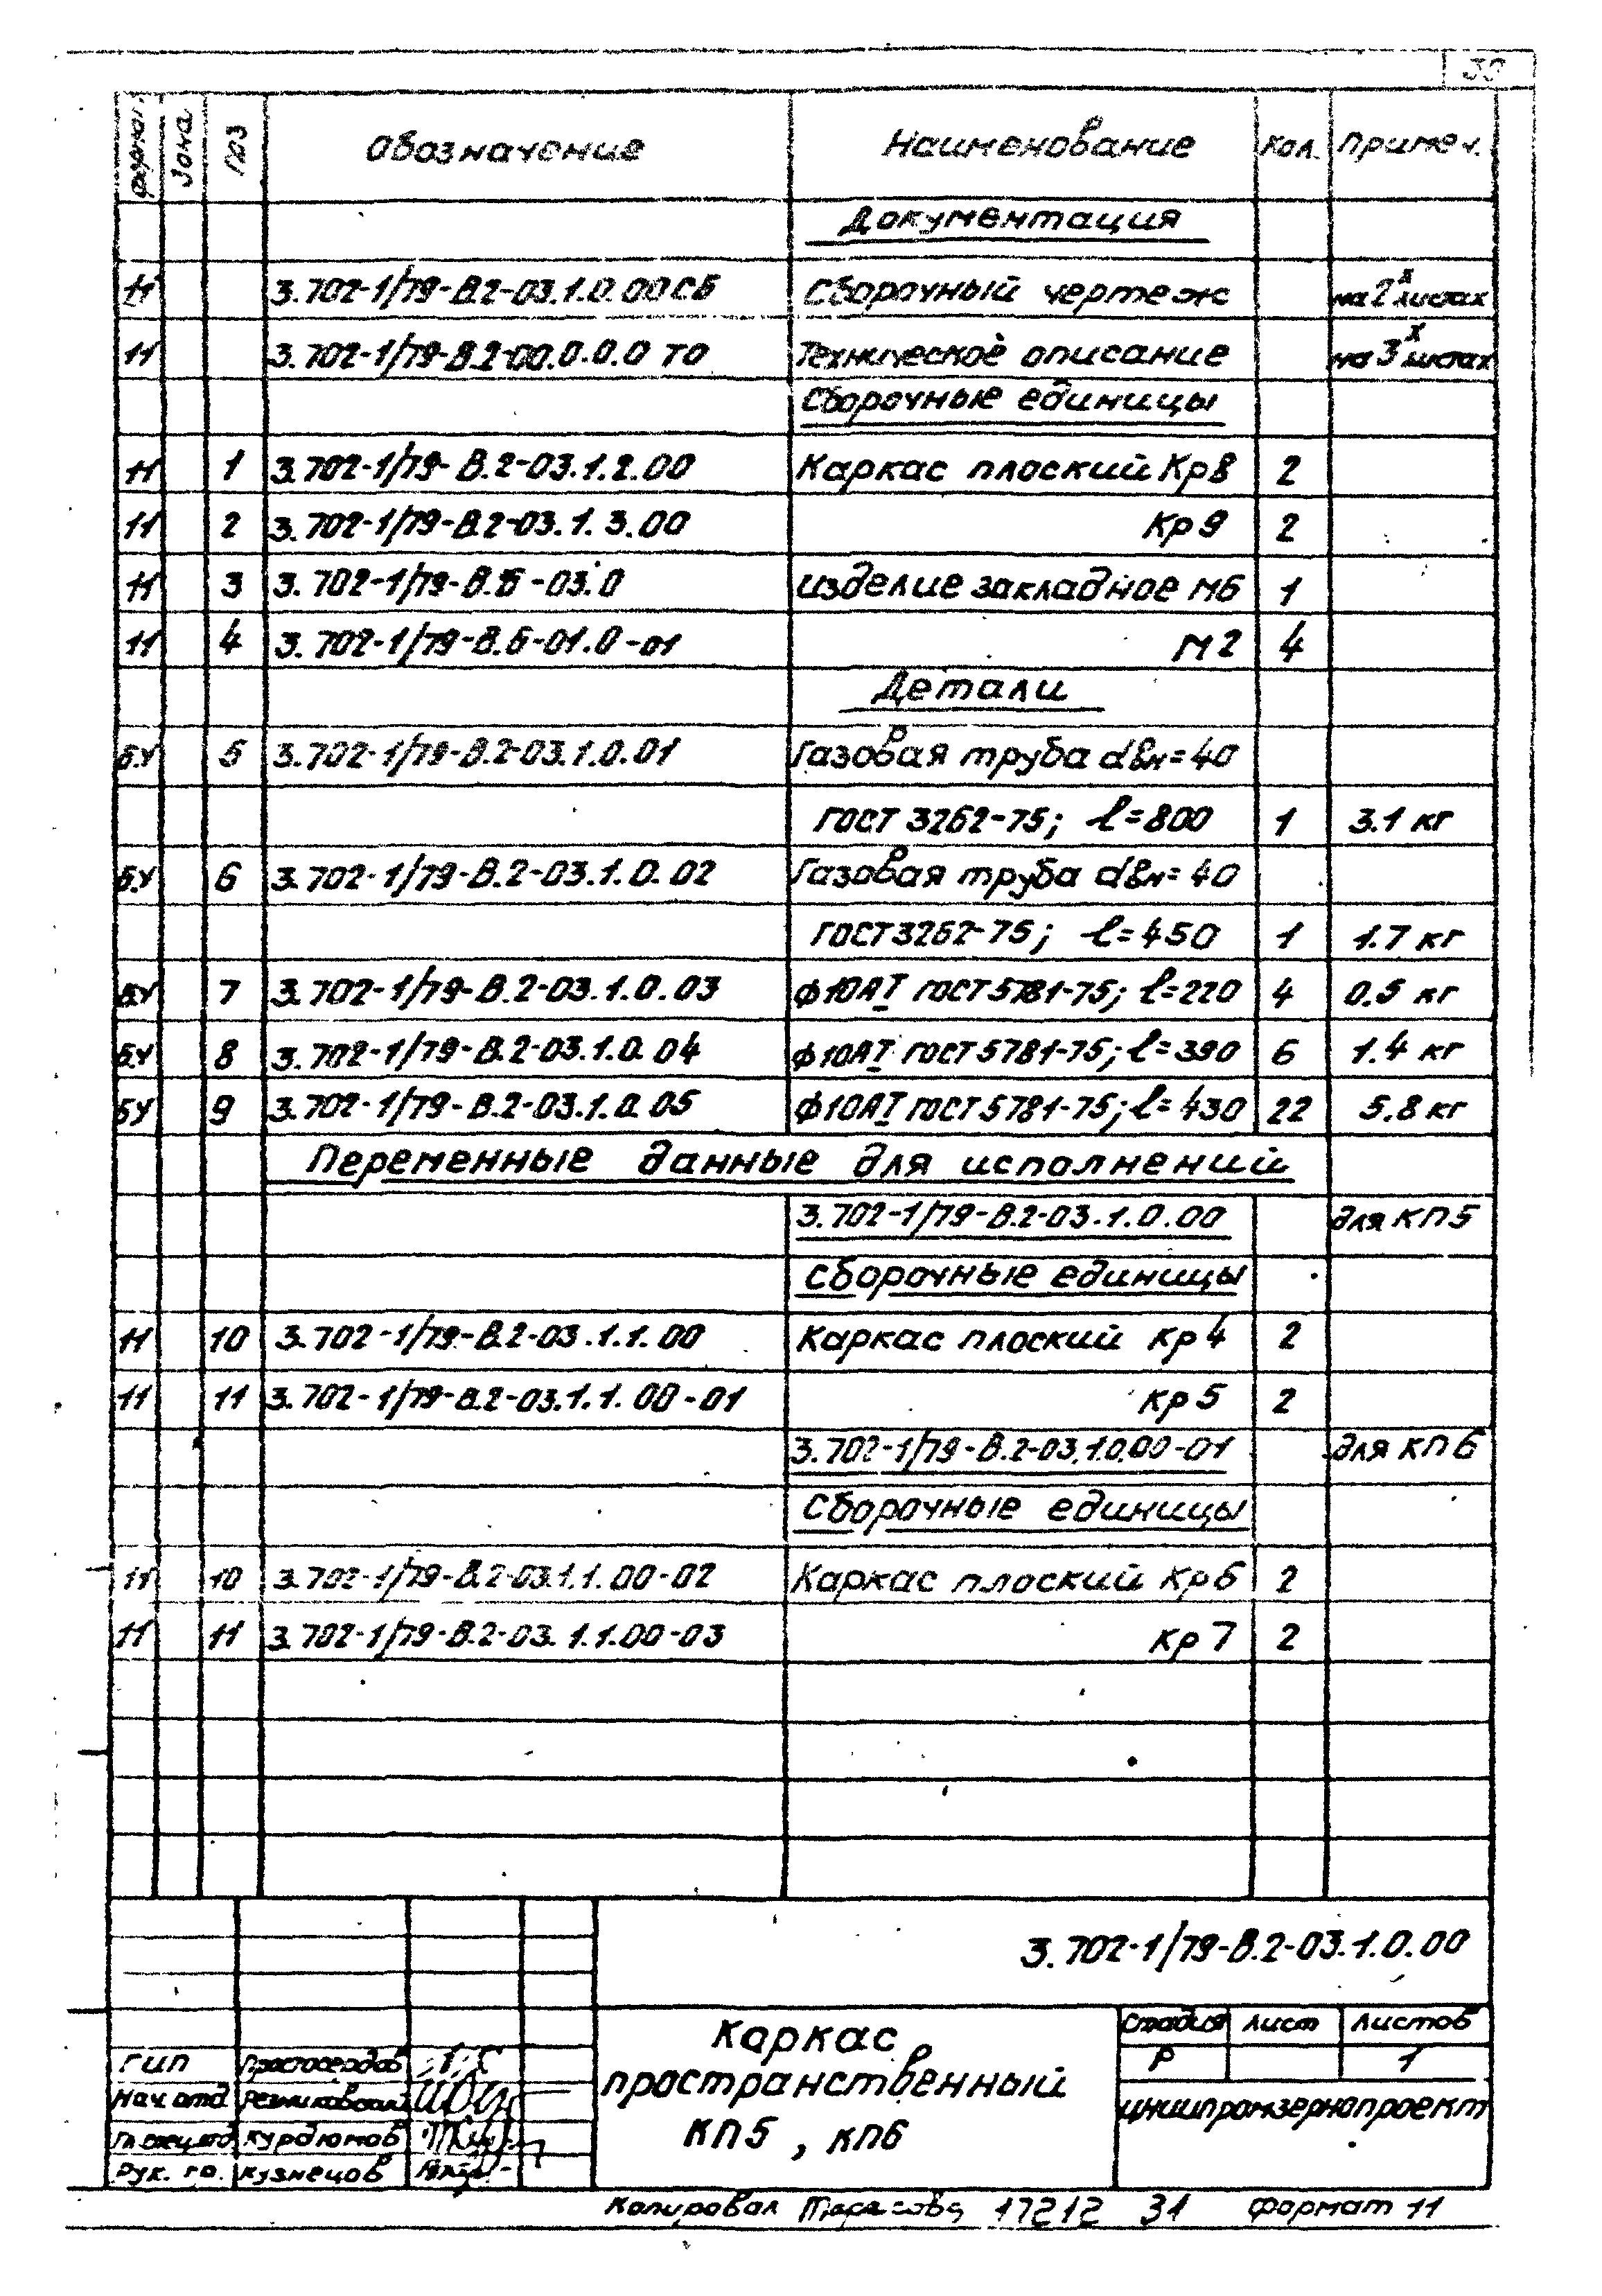 30
Формат Зона Поз Обозначение Наименование Кол. Примеч.
Документация
11 3.702-1/79-В.2-03.1.0.00СБ Сборочный чертеж на 2х листах
11 3.702-1/79-В.2-00.0.0.0 ТО Техническое описание на 3х листах
Сборочные единицы
11 1 3.702-1/79-В.2-03.1.2.00 Каркас плоский Кр8 2
11 2 3.702-1/79-В.2-03.1.3.00 Кр9 2
11 3 3.702-1/79-В.Б-03.0 изделие закладное М6 1
11 4 3.702-1/79-В.Б-01.0-01 М2 4
Детали
БУ 5 3.702-1/79-В.2-03.1.0.01 Газовая труба dвн=40
ГОСТ 3262-75; ℓ=800 1 3.1 кг
Б.У 6 3.702-1/79-В.2-03.1.0.02 Газовая труба dвн=40
ГОСТ 3262-75; ℓ=450 1 1.7 кг
БУ 7 3.702-1/79-В.2-03.1.0.03 ф10АI ГОСТ 5781-75; ℓ=220 4 0.5 кг
Б.У 8 3.702-1/79-В.2-03.1.0.04 ф10АI ГОСТ 5781-75; ℓ=390 6 1.4 кг
БУ 9 3.702-1/79-В.2-03.1.0.05 ф10АI ГОСТ 5781-75; ℓ=430 22 5.8 кг
Переменные данные для исполнений
3.702-1/79-В.2-03.1.0.00 для КП5
Сборочные единицы
11 10 3.702-1/79-В.2-03.1.1.00 Каркас плоский Кр4 2
11 11 3.702-1/79-В.2-03.1.1.00-01 Кр5 2
3.702-1/79-В.2-03.1.0.00-01 для КП6
Сборочные единицы
11 10 3.702-1/79-В.2-03.1.1.00-02 Каркас плоский Кр6 2
11 11 3.702-1/79-В.2-03.1.1.00-03 Кр7 2
3.702-1/79-В.2-03.1.0.00
Каркас
пространственный
КП5, КП6
Стадия Лист Листов
Р 1
ЦНИИпромзернопроект
ГИП Простосердов
Нач. отд Резниковский
Гл. спец. отд Курдюмов
Рук. гр. Кузнецов
Копировал Тарасова 17212 31 Формат 11